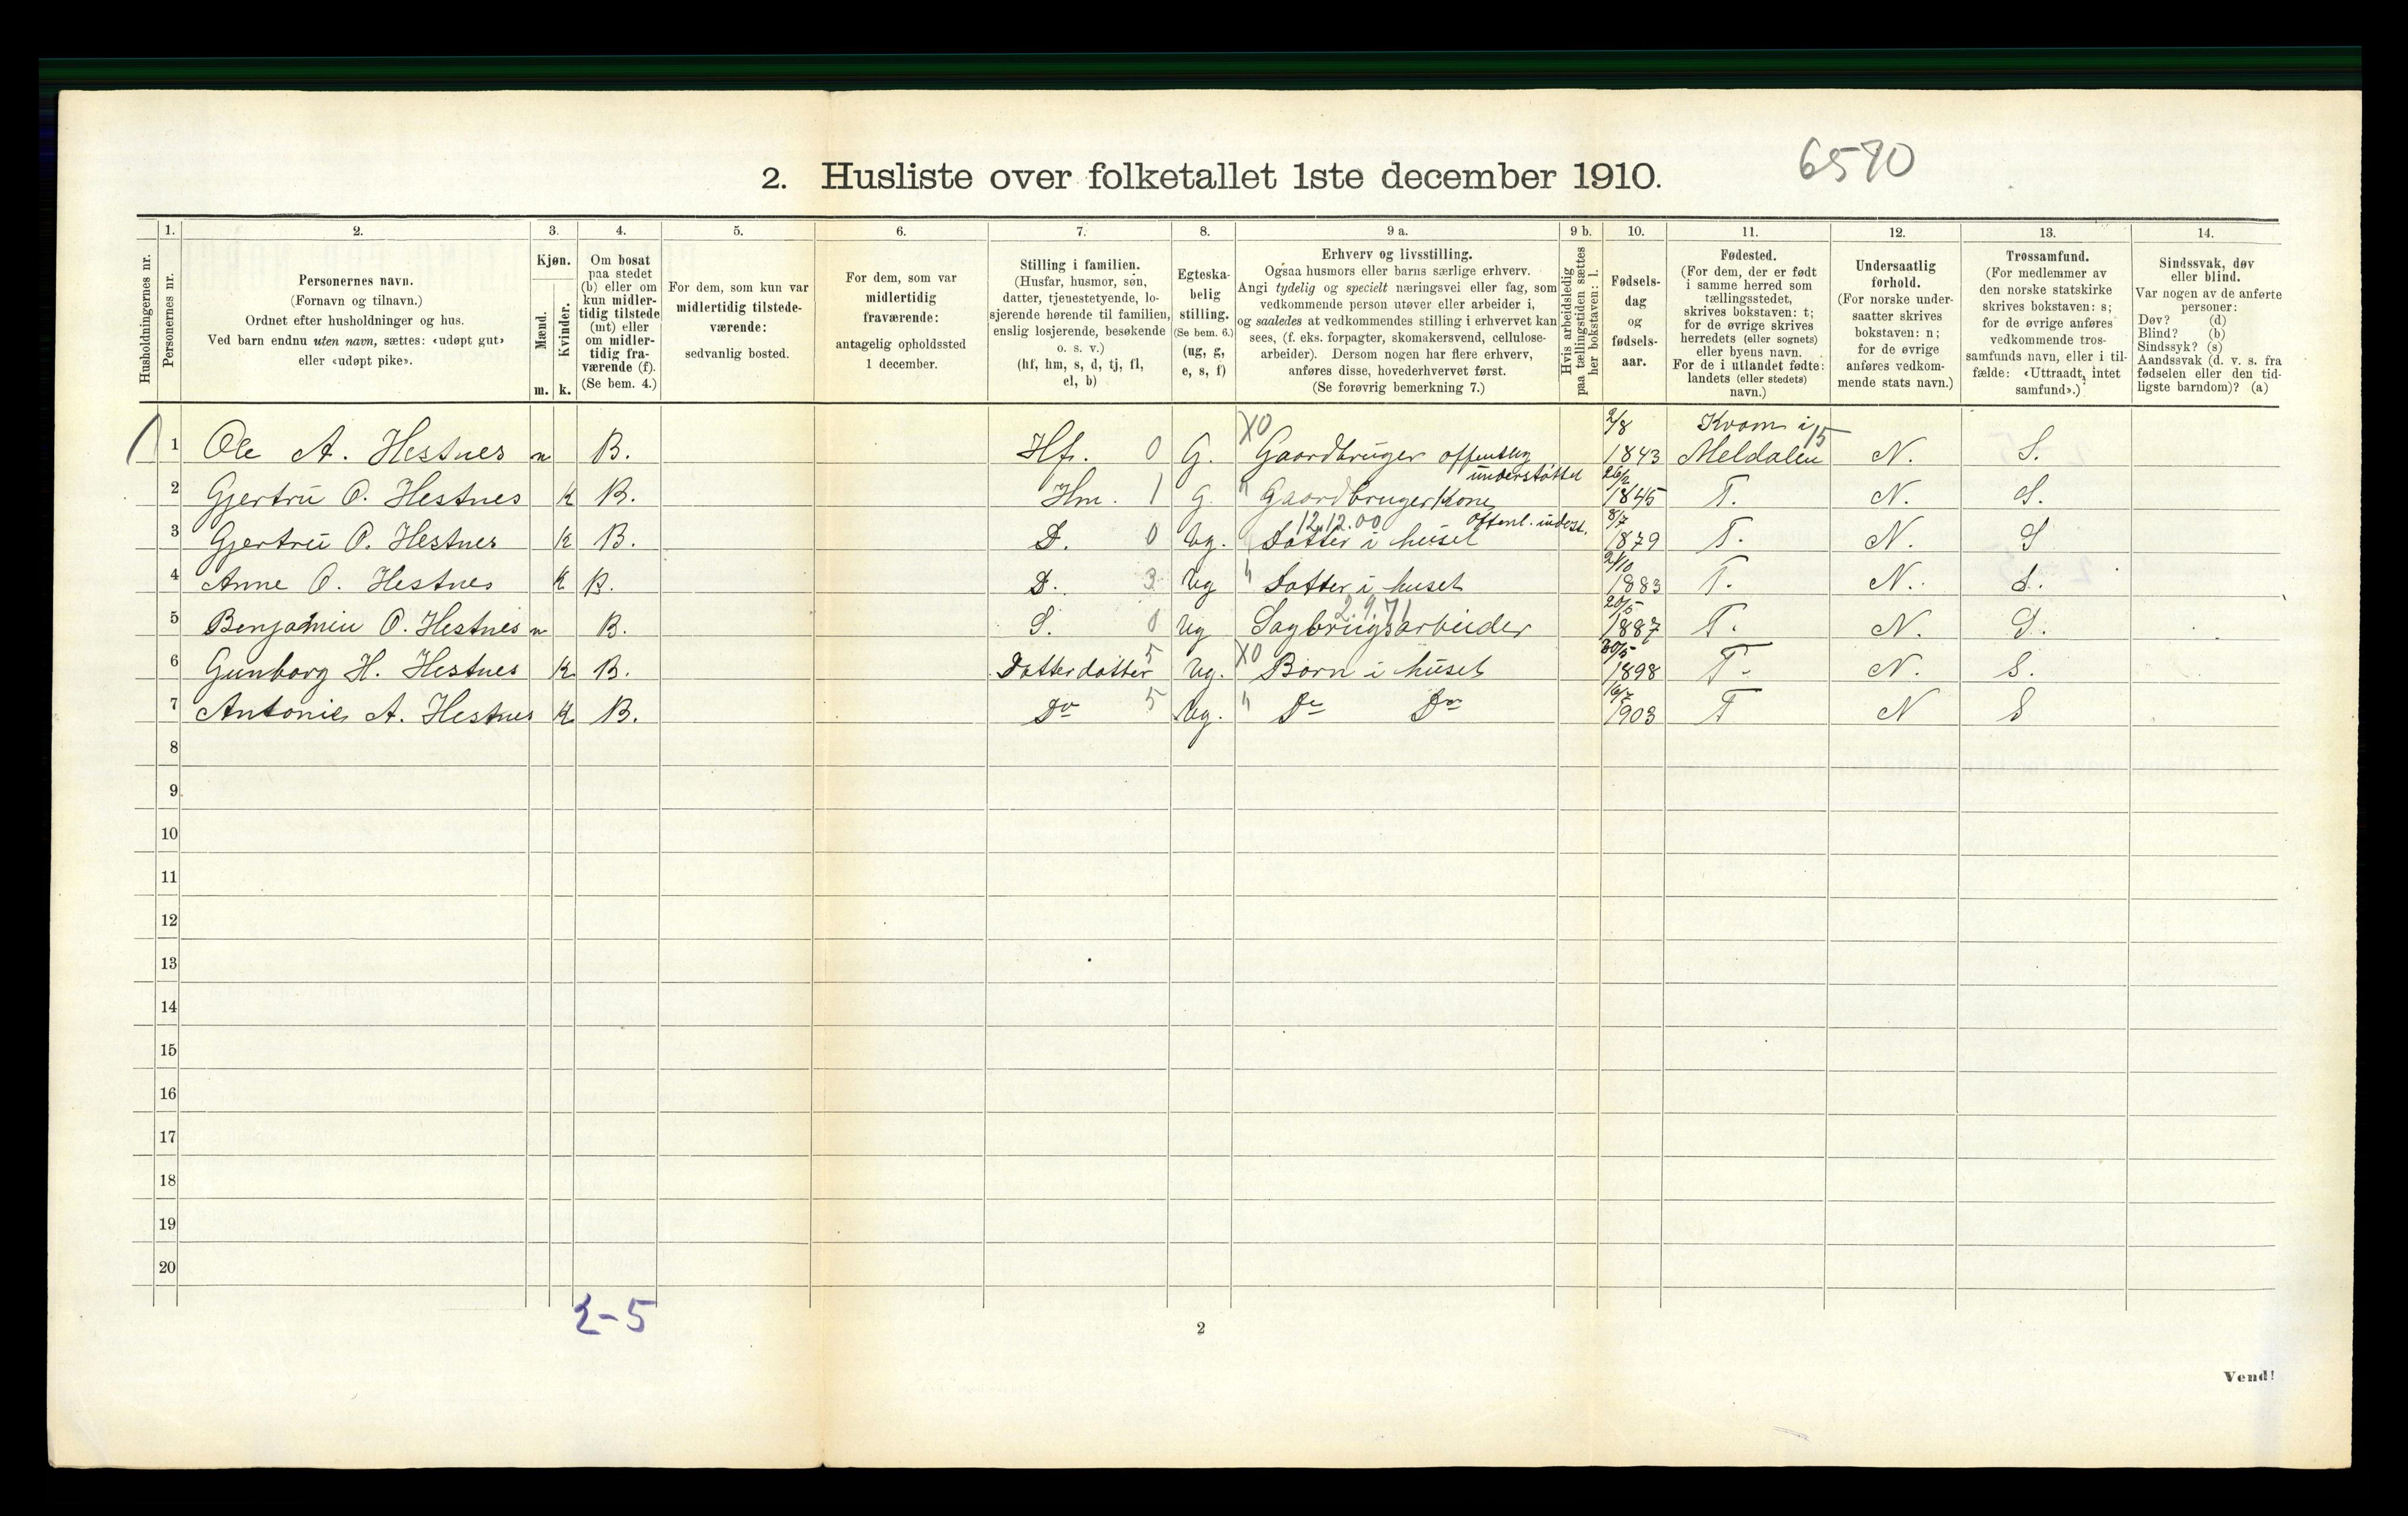 6590
2. Husliste over folketallet 1ste december 1910.
Husholdningernes nr.
1.
Personernes nr.
2.
Personernes navn.
(Fornavn og tilnavn.)
Ordnet efter husholdninger og hus.
Ved barn endnu uten navn, sættes: «udøpt gut»
eller «udøpt pike».
3.
Kjøn.
Mænd.
Kvinder.
m. k.
4.
Om bosat
paa stedet
(b) eller om
kun midler-
tidig tilstede
(mt) eller
om midler-
tidig fra-
værende (f).
(Se bem. 4.)
5.
For dem, som kun var
midlertidig tilstede-
værende:
sedvanlig bosted.
6.
For dem, som var
midlertidig
fraværende:
antagelig opholdssted
1 december.
7.
Stilling i familien.
(Husfar, husmor, søn,
datter, tjenestetyende, lo-
sjerende hørende til familien,
enslig losjerende, besøkende
o. s. v.)
(hf, hm, s, d, tj, fl,
el, b)
8.
Egteska-
belig
stilling.
(Se bem. 6.)
(ug, g,
e, s, f)
9 a.
Erhverv og livsstilling.
Ogsaa husmors eller barns særlige erhverv.
Angi tydelig og specielt næringsvei eller fag, som
vedkommende person utøver eller arbeider i,
og saaledes at vedkommendes stilling i erhvervet kan
sees, (f. eks. forpagter, skomakersvend, cellulose-
arbeider). Dersom nogen har flere erhverv,
anføres disse, hovederhvervet først.
(Se forøvrig bemerkning 7.)
9 b.
Hvis arbeidsledig
paa tællingstiden sættes
her bokstaven: l.
10.
Fødsels-
dag
og
fødsels-
aar.
11.
Fødested.
(For dem, der er født
i samme herred som
tællingsstedet,
skrives bokstaven: t;
for de øvrige skrives
herredets (eller sognets)
eller byens navn.
For de i utlandet fødte:
landets (eller stedets)
navn.)
12.
Undersaatlig
forhold.
(For norske under-
saatter skrives
bokstaven: n;
for de øvrige
anføres vedkom-
mende stats navn.)
13.
Trossamfund.
(For medlemmer av
den norske statskirke
skrives bokstaven: s;
for de øvrige anføres
vedkommende tros-
samfunds navn, eller i til-
fælde: «Uttraadt, intet
samfund».)
14.
Sindssvak, døv
eller blind.
Var nogen av de anførte
personer:
Døv? (d)
Blind? (b)
Sindssyk? (s)
Aandssvak (d. v. s. fra
fødselen eller den tid-
ligste barndom)? (a)
X0 2/8 Kvam i 15
1 Ole A. Hestnes m B. Hf. 0 G. Gaardbruger offentlig understøttet 1843 Meldalen N. S.
26/2
2 Gjertru O. Hestnes K B. Hm. 1 G. " Gaardbruger Kone 1845 T. N. S.
12.12.00 Offenl. underst. 8/7
3 Gjertru O. Hestnes K B. D. 0 Ug. Datter i huset 1879 T. N. S
21/10
4 Anne O. Hestnes K B. D. 3 Ug " Datter i huset 1883 T. N. S.
2.9.71 20/5
5 Benjamin O. Hestnes m B. S. 0 Ug Sagbrugsarbeider 1887 T. N. S.
X0 30/5
6 Gunborg H. Hestnes K. B. Datterdatter 5 Ug. Barn i huset 1898 T. N. S.
16/7
7 Antonie A. Hestnes K. B. Do 5 Ug. " Do Do 1903 T N S
8
9
10
11
12
13
14
15
16
17
18
19
20
2-5
2
Vend!